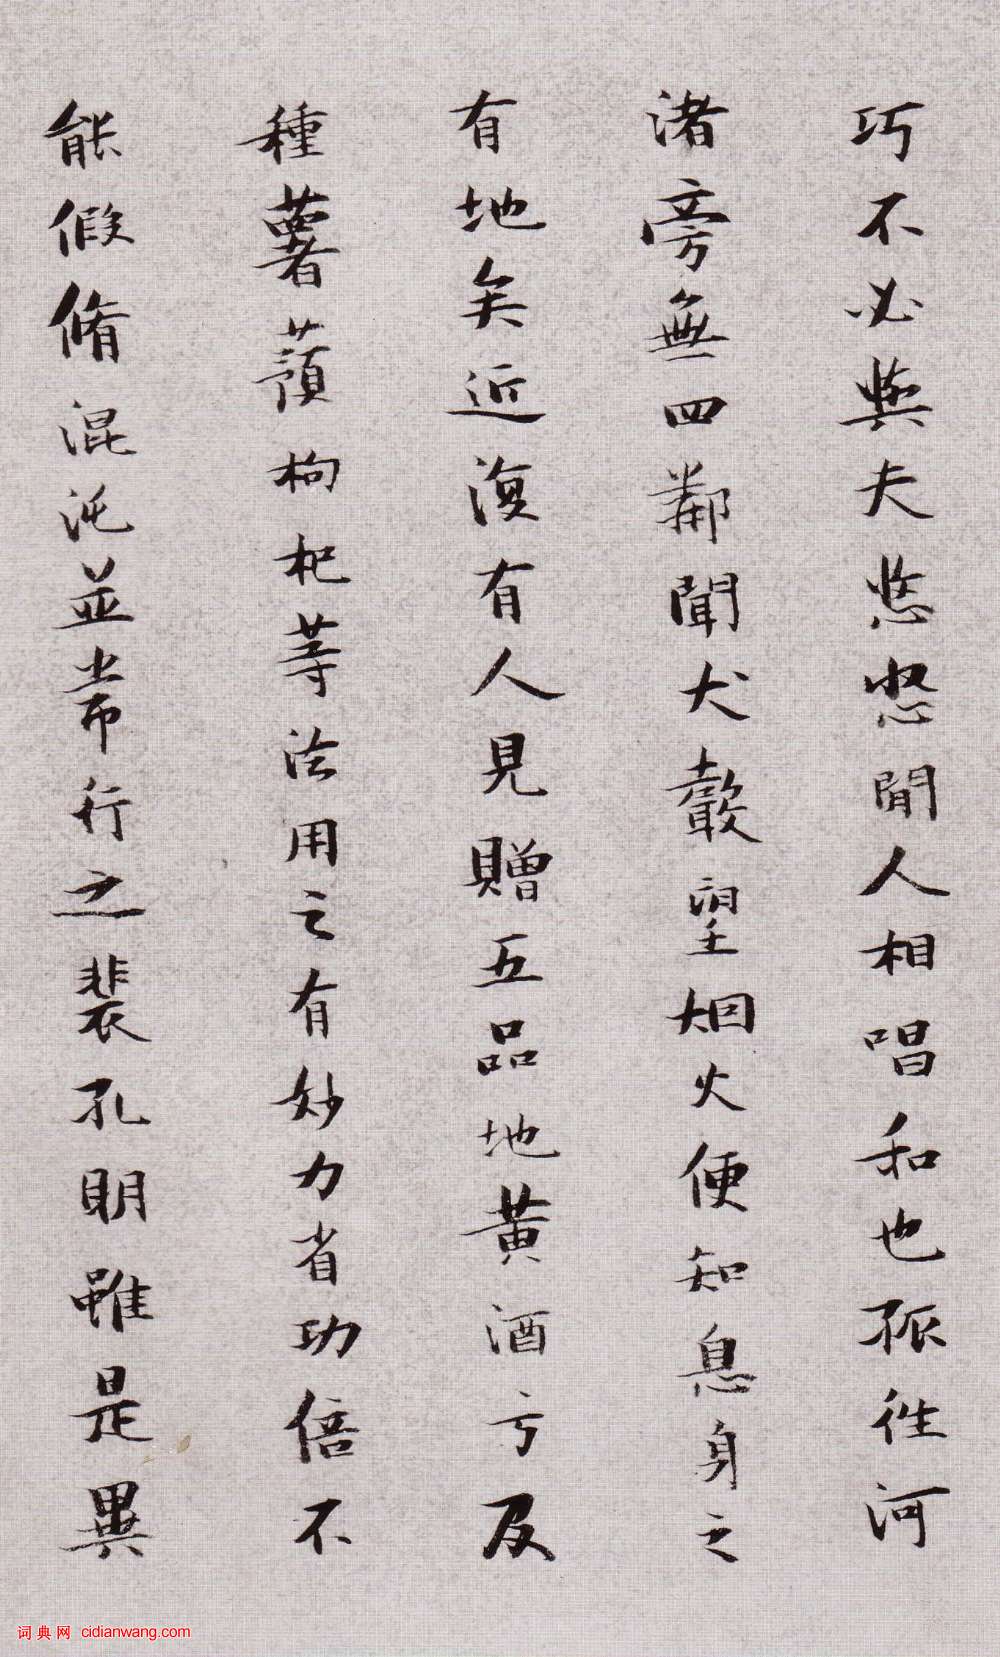 巧不必與夫悠悠閒人相唱和也孤住河
渚旁無四鄰聞犬聲望烟火便知息身之
有地矣近復有人見贈五品地黃酒方及
種薯蕷枸杞等法用之有妙力省功倍不
能假脩混沌並常行之裴孔明雖是異
词典网 cidianwang.com